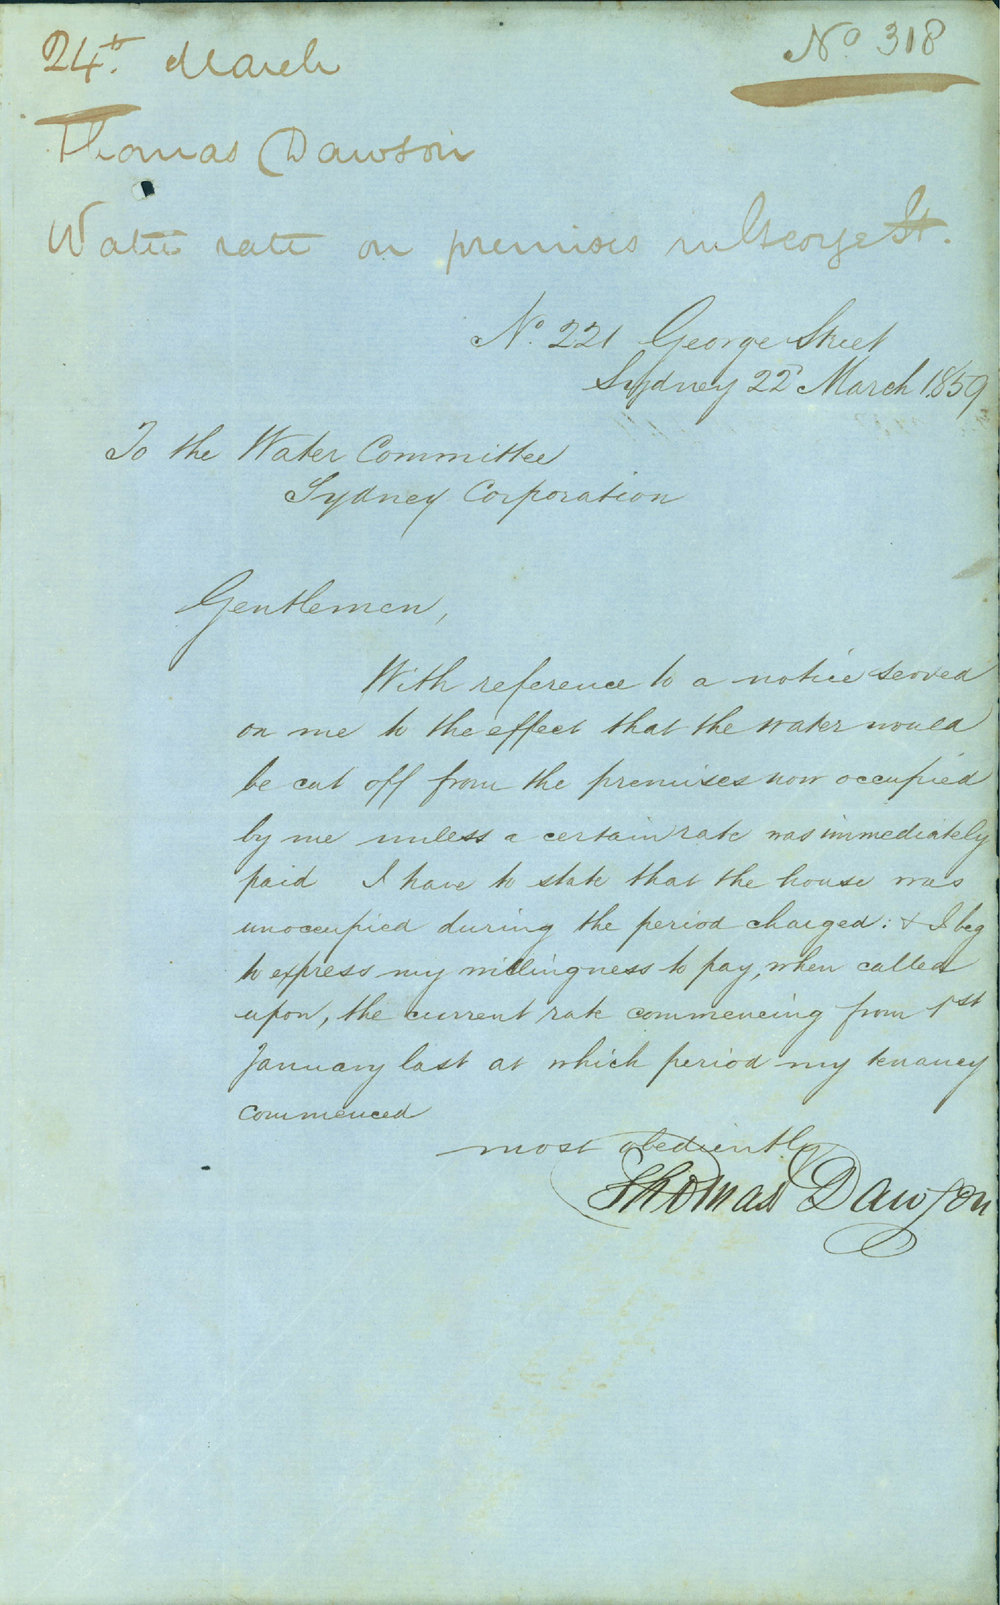 24th. March
No 318
Thomas Dawson
Water rate on premises in George St.
No. 221 George Street
Sydney 22d March 1859
To the Water Committee
Sydney Corporation
Gentlemen,
With reference to a notice served
on me to the effect that the water would
be cut off from the premises now occupied
by me unless a certain rate was immediately
paid I have to state that the house was
unoccupied during the period charged: & I beg
to express my willingness to pay, when called
upon, the current rate commencing from 1st
January last at which period my tenancy
commenced
most obediently
Thomas Dawson